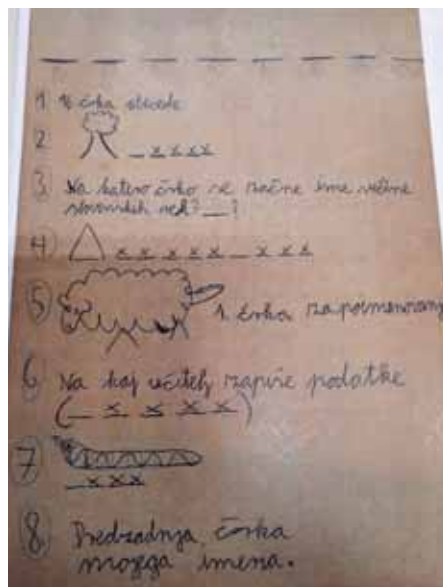 1 16 črka abecede
2 _ x x x x
3 Na katero črko se začne ime večine
slovenskih rek? _ ?
4 x x x x x _ x x x
5 1. črka za poimenovanje
6 Na kaj učitelj zapiše podatke
( _ x x x x )
7
_ x x x
8. Predzadnja črka
mojega imena.